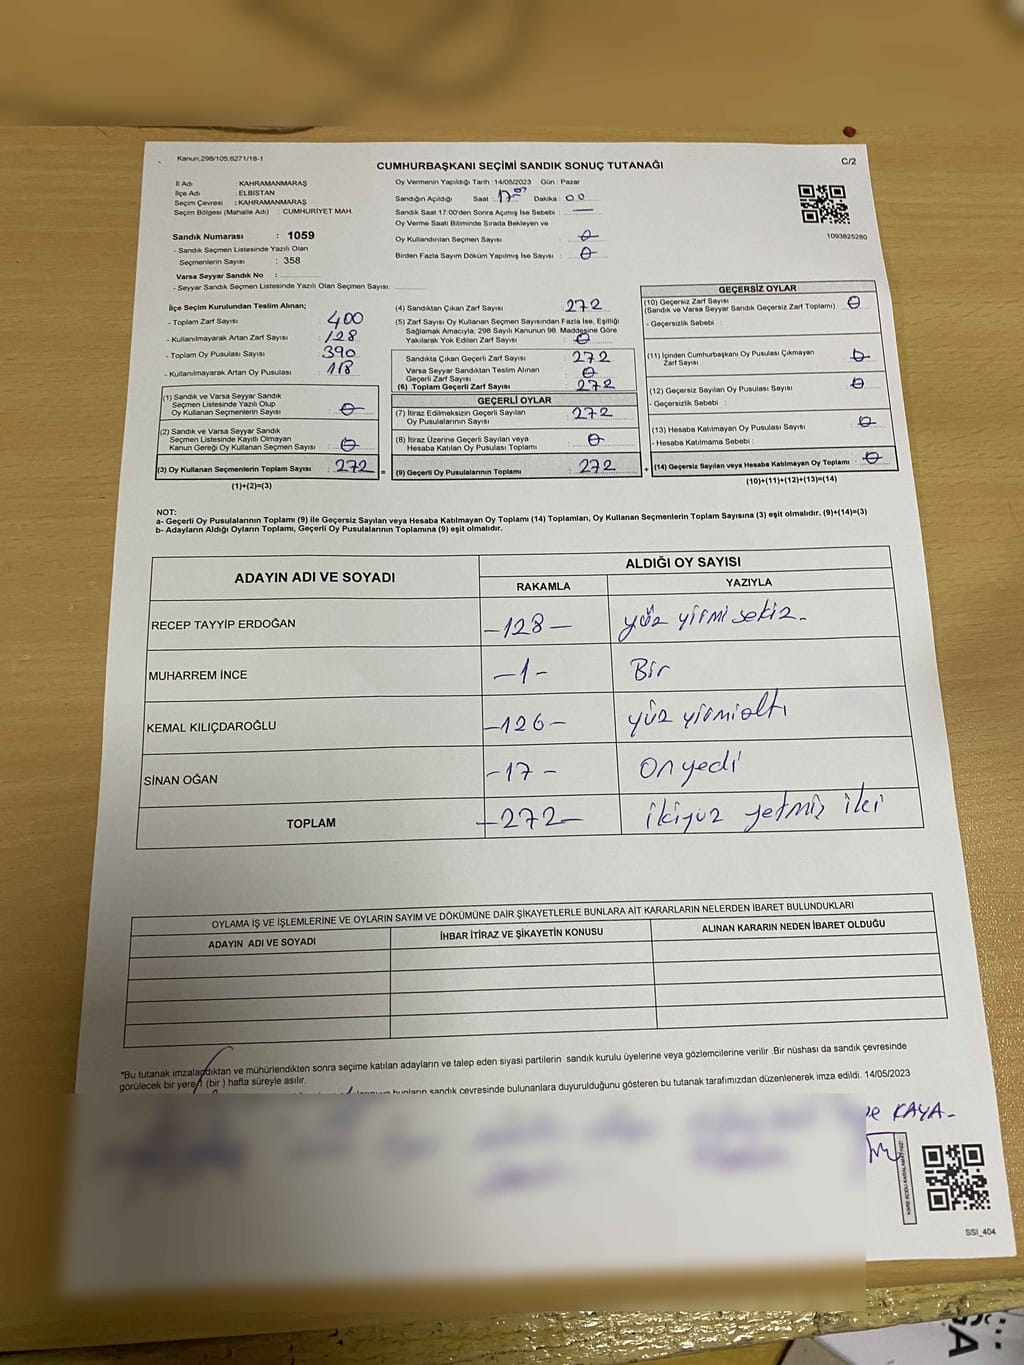 Kanun.298/105;6271/18-1
CUMHURBAŞKANI SEÇİMİ SANDIK SONUÇ TUTANAĞI
C/2
İl Adı : KAHRAMANMARAŞ
İlçe Adı : ELBİSTAN
Seçim Çevresi : KAHRAMANMARAŞ
Seçim Bölgesi (Mahalle Adı) : CUMHURİYET MAH.
Sandık Numarası : 1059
- Sandık Seçmen Listesinde Yazılı Olan
Seçmenlerin Sayısı : 358
Varsa Seyyar Sandık No :
- Seyyar Sandık Seçmen Listesinde Yazılı Olan Seçmen Sayısı:
Oy Vermenin Yapıldığı Tarih :14/05/2023 Gün : Pazar
Sandığın Açıldığı Saat 17 00 Dakika 00
Sandık Saat 17:00'den Sonra Açımış İse Sebebi : —
Oy Verme Saati Bitiminde Sırada Bekleyen ve
Oy Kullandırılan Seçmen Sayısı : 0
Birden Fazla Sayım Döküm Yapılmış İse Sayısı : 0
1093825260
İlçe Seçim Kurulundan Teslim Alınan;
- Toplam Zarf Sayısı : 400
- Kullanılmayarak Artan Zarf Sayısı : 128
- Toplam Oy Pusulası Sayısı : 390
- Kullanılmayarak Artan Oy Pusulası : 118
(1) Sandık ve Varsa Seyyar Sandık
Seçmen Listesinde Yazılı Olup
Oy Kullanan Seçmenlerin Sayısı : 0
(2) Sandık ve Varsa Seyyar Sandık
Seçmen Listesinde Kayıtlı Olmayan
Kanun Gereği Oy Kullanan Seçmen Sayısı : 0
(3) Oy Kullanan Seçmenlerin Toplam Sayısı : 272 =
(1)+(2)=(3)
(4) Sandıktan Çıkan Zarf Sayısı : 272
(5) Zarf Sayısı Oy Kullanan Seçmen Sayısından Fazla İse, Eşitliği
Sağlamak Amacıyla; 298 Sayılı Kanunun 98. Maddesine Göre
Yakılarak Yok Edilen Zarf Sayısı : 0
Sandıkta Çıkan Geçerli Zarf Sayısı : 272
Varsa Seyyar Sandıktan Teslim Alınan
Geçerli Zarf Sayısı : 0
(6) Toplam Geçerli Zarf Sayısı : 272
GEÇERLİ OYLAR
(7) İtiraz Edilmeksizin Geçerli Sayılan
Oy Pusulalarının Sayısı : 272
(8) İtiraz Üzerine Geçerli Sayılan veya
Hesaba Katılan Oy Pusulası Toplamı : 0
(9) Geçerli Oy Pusulalarının Toplamı : 272 +
GEÇERSİZ OYLAR
(10) Geçersiz Zarf Sayısı
(Sandık ve Varsa Seyyar Sandık Geçersiz Zarf Toplamı) : 0
- Geçersizlik Sebebi :
(11) İçinden Cumhurbaşkanı Oy Pusulası Çıkmayan
Zarf Sayısı : 0
(12) Geçersiz Sayılan Oy Pusulası Sayısı : 0
- Geçersizlik Sebebi :
(13) Hesaba Katılmayan Oy Pusulası Sayısı : 0
- Hesaba Katılmama Sebebi :
(14) Geçersiz Sayılan veya Hesaba Katılmayan Oy Toplamı : 0
(10)+(11)+(12)+(13)=(14)
NOT:
a- Geçerli Oy Pusulalarının Toplamı (9) ile Geçersiz Sayılan veya Hesaba Katılmayan Oy Toplamı (14) Toplamları, Oy Kullanan Seçmenlerin Toplam Sayısına (3) eşit olmalıdır. (9)+(14)=(3)
b- Adayların Aldığı Oyların Toplamı, Geçerli Oy Pusulalarının Toplamına (9) eşit olmalıdır.
ADAYIN ADI VE SOYADI
ALDIĞI OY SAYISI
RAKAMLA YAZIYLA
RECEP TAYYİP ERDOĞAN -128- yüz yirmi sekiz.
MUHARREM İNCE -1- Bir
KEMAL KILIÇDAROĞLU -126- yüz yirmialtı
SİNAN OĞAN -17- onyedi
TOPLAM -272- ikiyüz yetmiş iki
OYLAMA İŞ VE İŞLEMLERİNE VE OYLARIN SAYIM VE DÖKÜMÜNE DAİR ŞİKAYETLERLE BUNLARA AİT KARARLARIN NELERDEN İBARET BULUNDUKLARI
ADAYIN ADI VE SOYADI İHBAR İTİRAZ VE ŞİKAYETİN KONUSU ALINAN KARARIN NEDEN İBARET OLDUĞU
*Bu tutanak imzalandıktan ve mühürlendikten sonra seçime katılan adayların ve talep eden siyasi partilerin sandık kurulu üyelerine veya gözlemcilerine verilir .Bir nüshası da sandık çevresinde
görülecek bir yere 1 (bir ) hafta süreyle asılır.
bunların sandık çevresinde bulunanlara duyurulduğunu gösteren bu tutanak tarafımızdan düzenlenerek imza edildi. 14/05/2023
KAYA-
SSI_404